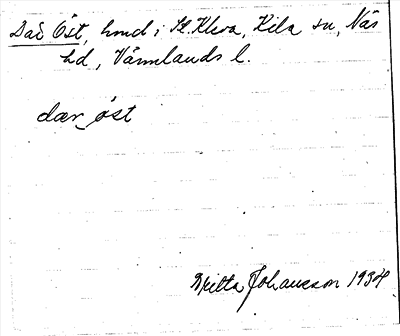 Där Öst, hmd i St. Kleva, Kila sn, Näs
hd, Värmlands l.
dær öst
Britta Johansson 1934